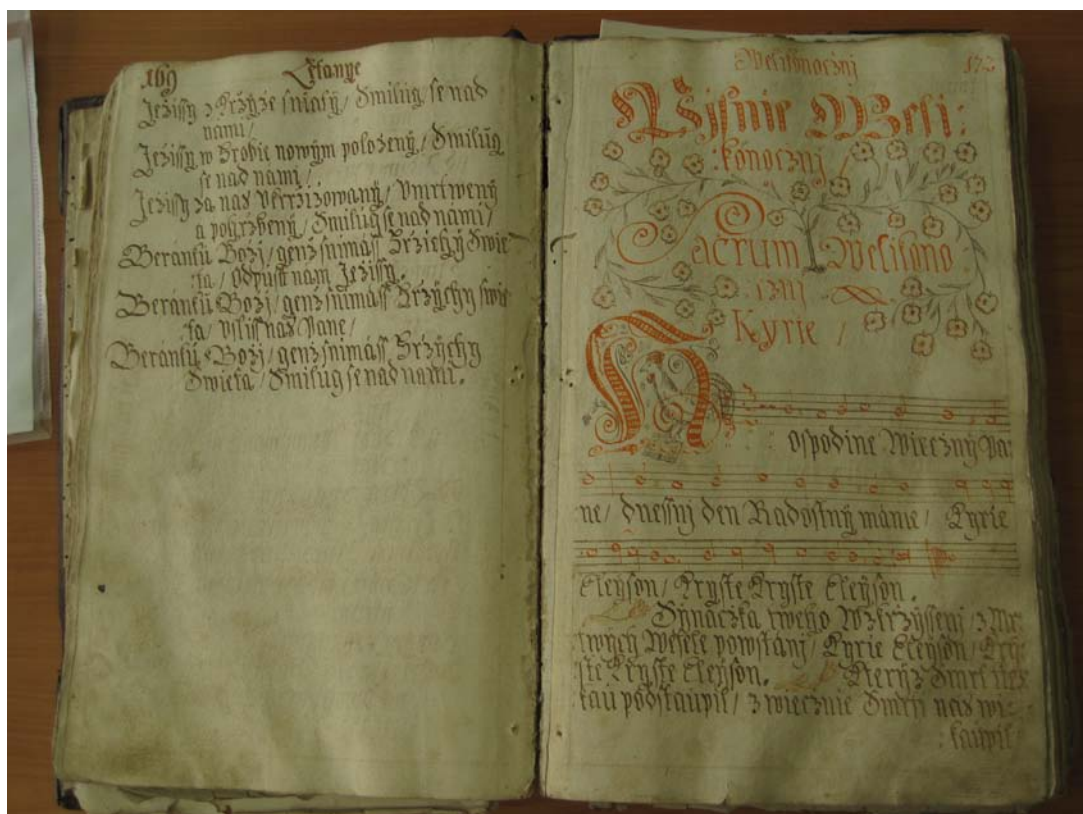 169 Letanye
Ježissy z Křzýže sniatý / Smilůg se nad
nami /
Ježissy w Hrobie nowým položený / Smilůg
se nad nami /
Ježissy za nas Ukrzižowaný / Umrtwený
a pohrzbený / Smilůg se nad nami /
Beránků Božj / genž snimáss Hržiechý Swie
ta / Odpust nam Ježissy.
Beránků Božj / genž snimáss Hržýchy swie
ta / usliss nás Pane /
Beránků Božj / genž snimáss Hržýchy
Swieta / Smilůg se nad nami.
Welikonocznj
Pjsnie Weli:
konocznj /
Sacrum Welikono
cznj
Kyrie /
Hospodine Wiecžný Pa:
ne / dnessnj den Radostný máme / Kyrie
Eleýson / Kryste Kryste Eleýson.
Synáczka twého Wzkržýssenj z Mr:
twých Wesele powstánj / Kyrie Eleýson / Krý
ste Kryste Eleýson. Kterýž Smrt
podstaupil / z wiecznie Smrti nás wi:
kaupil